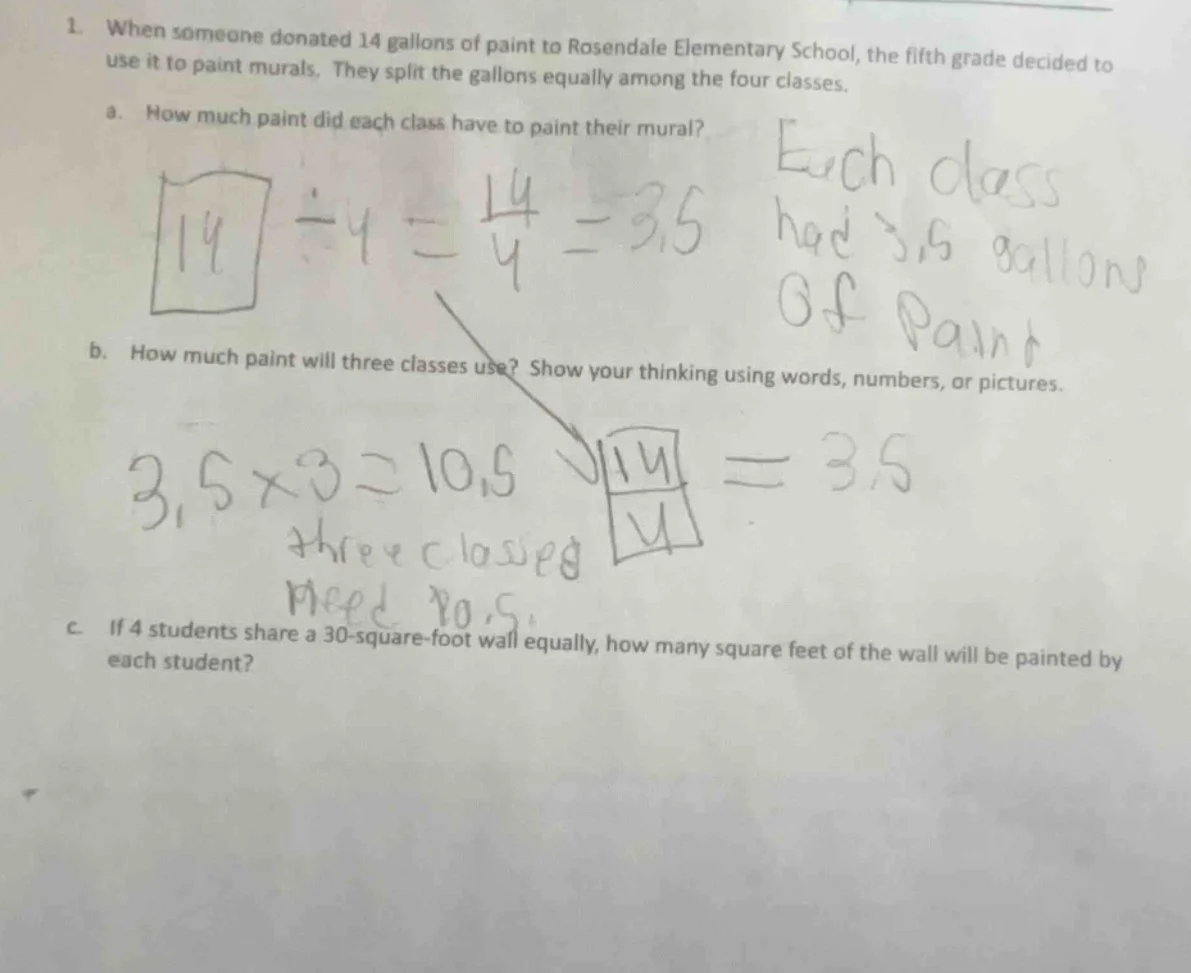 1. When someone donated 14 gallons of paint to Rosendale Elementary School, the fifth grade decided to
use it to paint murals. They split the gallons equally among the four classes.
a. How much paint did each class have to paint their mural?
14 ÷ 4 = 14/4 = 3,5
Each class
had 3,5 gallons
Of Paint
b. How much paint will three classes use? Show your thinking using words, numbers, or pictures.
3,5 × 3 = 10,5
14/4 = 3.5
three classes
Need 10.5.
c. If 4 students share a 30-square-foot wall equally, how many square feet of the wall will be painted by
each student?